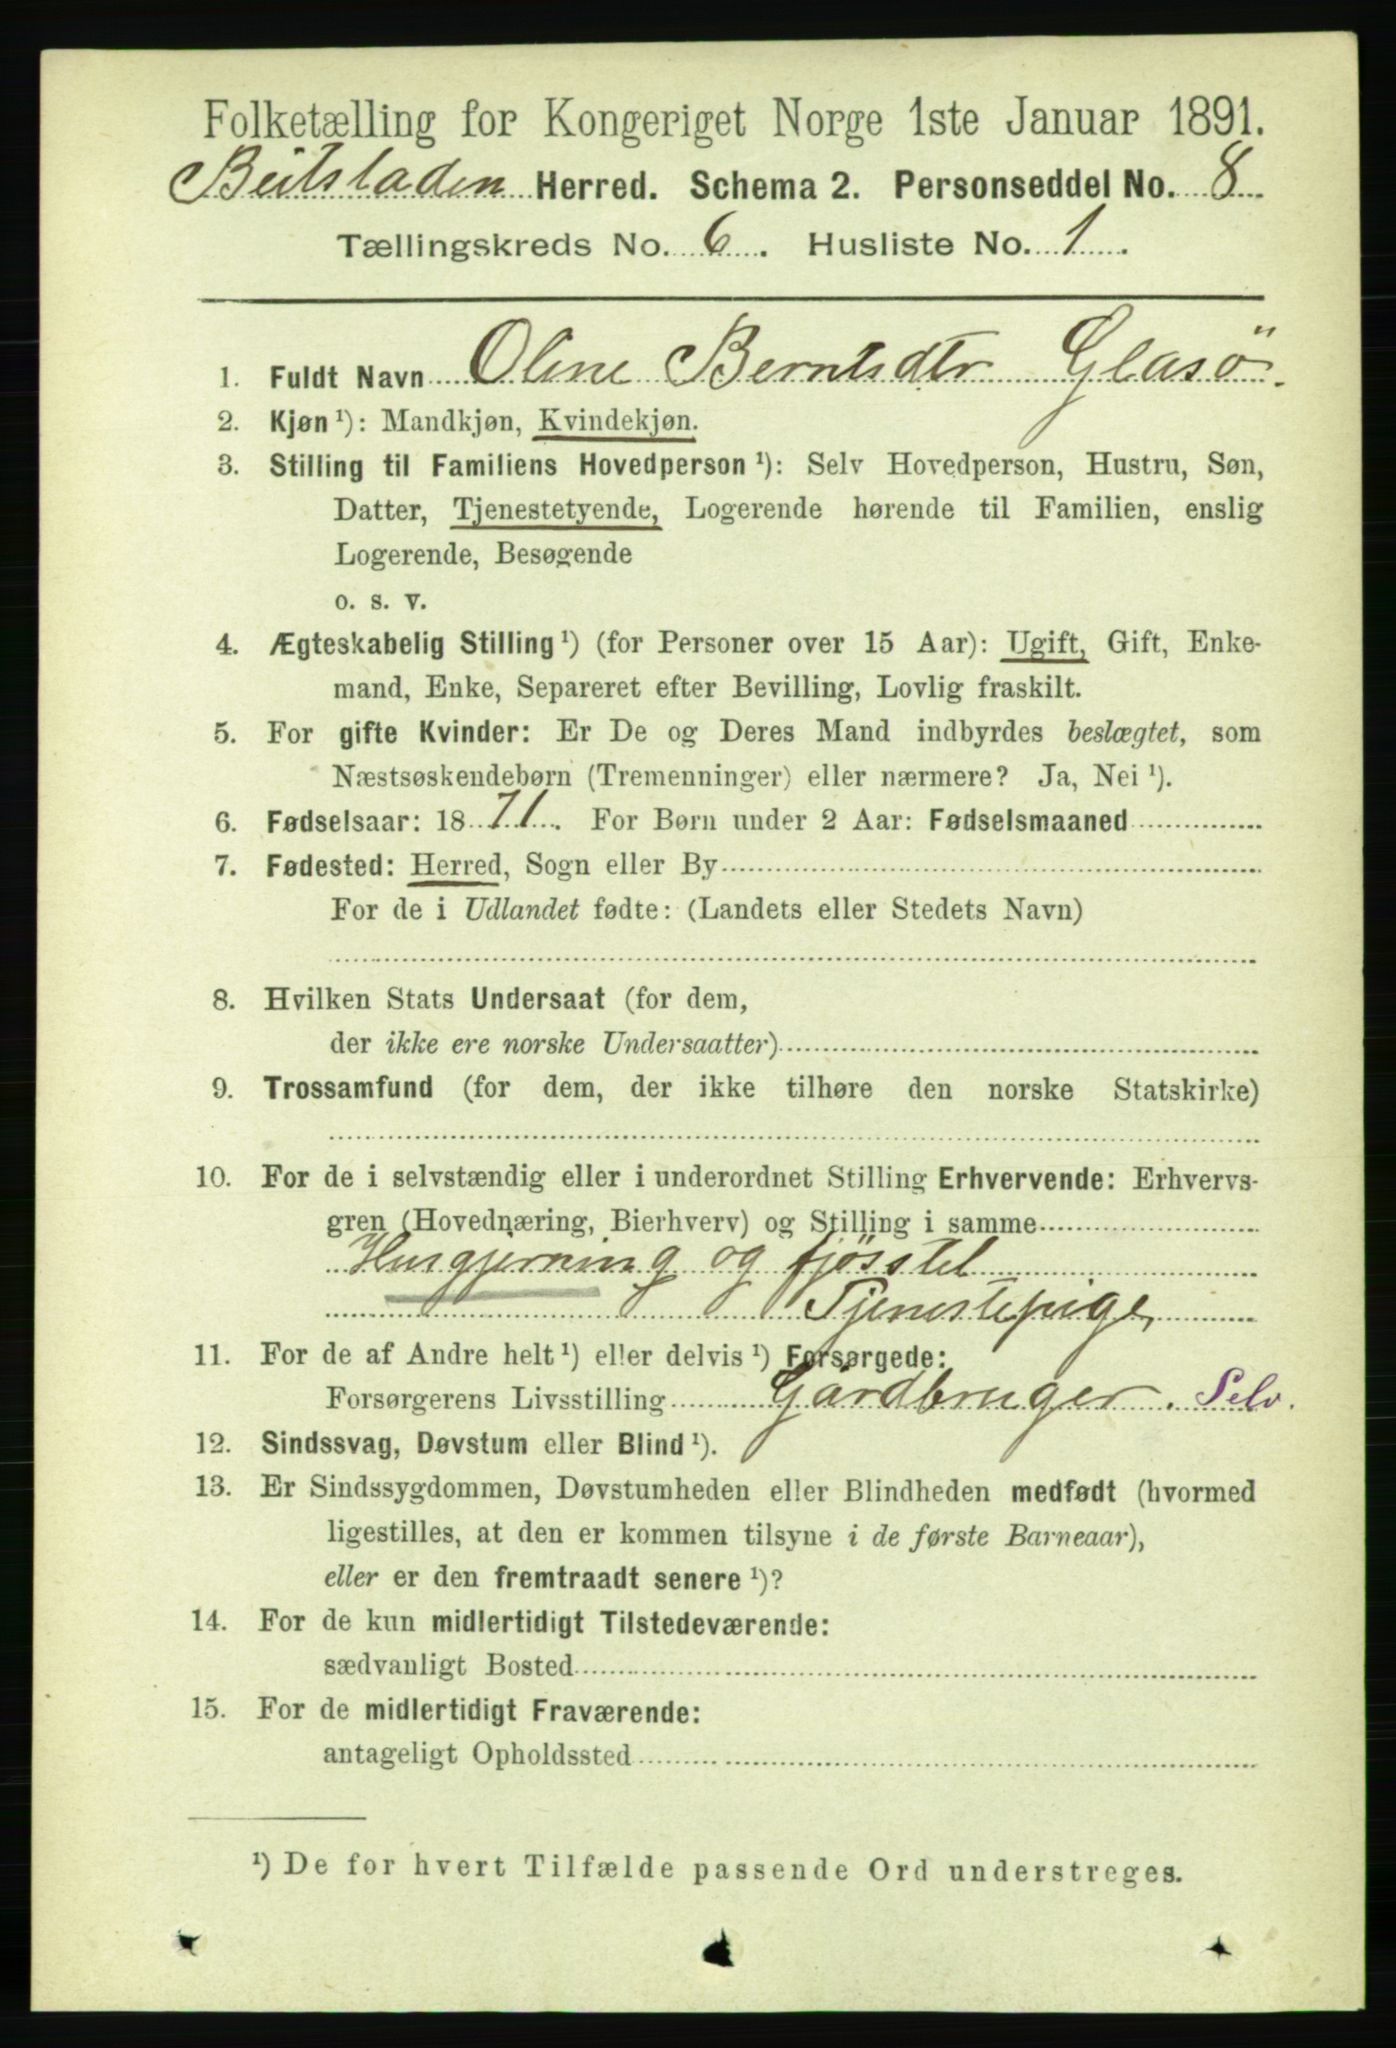 Folketælling for Kongeriget Norge 1ste Januar 1891.
Beitstaden Herred. Schema 2. Personseddel No. 8
Tællingskreds No. 6. Husliste No. 1.
1. Fuldt Navn Oline Berntsdtr Glasö.
2. Kjøn ¹): Mandkjøn, Kvindekjøn.
3. Stilling til Familiens Hovedperson ¹): Selv Hovedperson, Hustru, Søn,
Datter, Tjenestetyende, Logerende hørende til Familien, enslig
Logerende, Besøgende
o. s. v.
4. Ægteskabelig Stilling ¹) (for Personer over 15 Aar): Ugift, Gift, Enke-
mand, Enke, Separeret efter Bevilling, Lovlig fraskilt.
5. For gifte Kvinder: Er De og Deres Mand indbyrdes beslægtet, som
Næstsøskendebørn (Tremenninger) eller nærmere? Ja, Nei ¹).
6. Fødselsaar: 1871. For Børn under 2 Aar: Fødselsmaaned
7. Fødested: Herred, Sogn eller By
For de i Udlandet fødte: (Landets eller Stedets Navn)
8. Hvilken Stats Undersaat (for dem,
der ikke ere norske Undersaatter)
9. Trossamfund (for dem, der ikke tilhøre den norske Statskirke)
10. For de i selvstændig eller i underordnet Stilling Erhvervende: Erhvervs-
gren (Hovednæring, Bierhverv) og Stilling i samme
Husgjerning og fjösstel
Tjenestepige
11. For de af Andre helt ¹) eller delvis ¹) Forsørgede:
Forsørgerens Livsstilling Gårdbruger. Selv.
12. Sindssvag, Døvstum eller Blind ¹).
13. Er Sindssygdommen, Døvstumheden eller Blindheden medfødt (hvormed
ligestilles, at den er kommen tilsyne i de første Barneaar),
eller er den fremtraadt senere ¹)?
14. For de kun midlertidigt Tilstedeværende:
sædvanligt Bosted
15. For de midlertidigt Fraværende:
antageligt Opholdssted
¹) De for hvert Tilfælde passende Ord understreges.